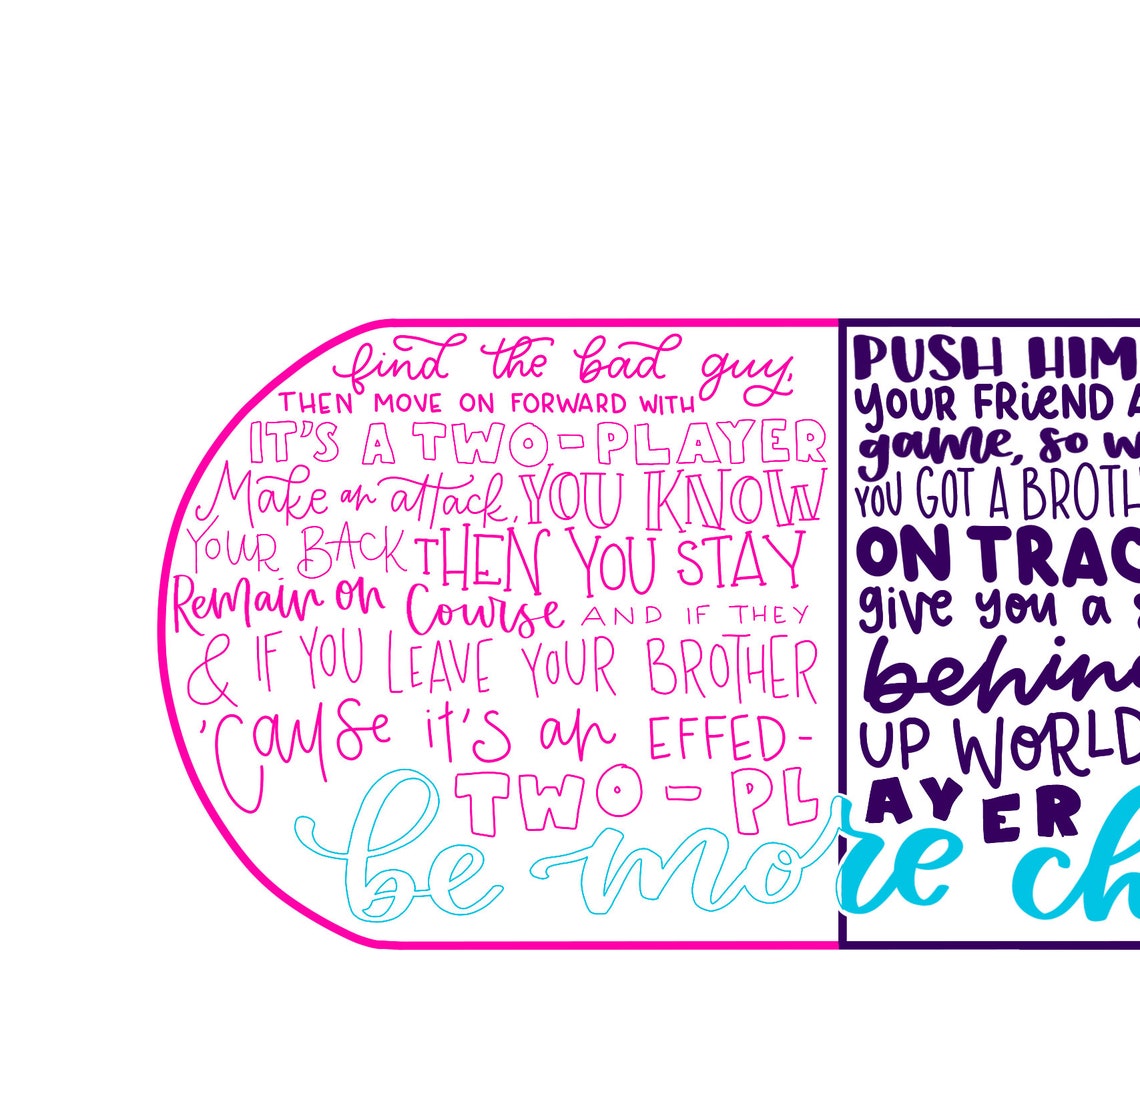 find the bad guy, PUSH HIM
THEN MOVE ON FORWARD WITH YOUR FRIEND A
IT'S A TWO-PLAYER game, so w
Make an attack, YOU KNOW YOU GOT A BROTH
YOUR BACK THEN YOU STAY ON TRAC
Remain on Course AND IF THEY give you a
& IF YOU LEAVE YOUR BROTHER behin
'Cause it's an EFFED- UP WORLD
TWO-PLAYER
be more ch